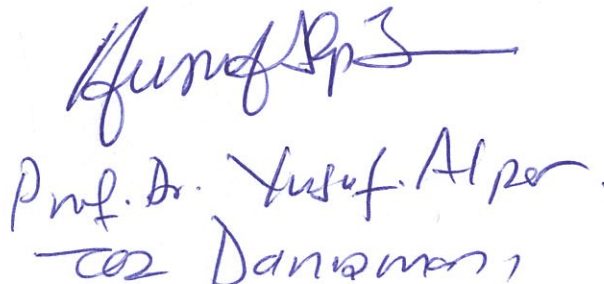 Yusuf Alper
Prof. Dr. Yusuf. Alper.
Tez Danışmanı